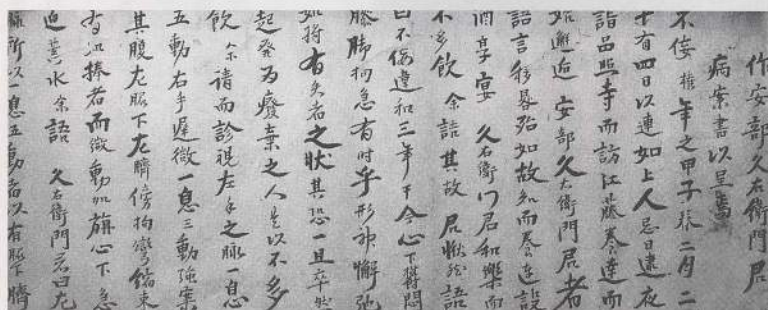 作安部久右衛門君
病案書以呈焉
不侫年之甲子春二月二
十有四日以連如上人忌日逮夜
詣品照寺而訪江藤養達而
始邂逅安部久右衛門君者
語言移晷殆如故知而養達設
酒享宴久右衛門君和樂而
不多飲余詰其故君愀然語
曰不侫違和三年于今心下悶
膝脚拘急有時乎形神懈弛
如將有失者之狀其恐一旦卒然
起發为癈棄之人是以不多
飲余請而診視左手之脉一息
五動右手遲微一息三動強案
其腹左脇下左臍傍拘攣結束
有捧者而微動加旃心下急
迫黄水余語久右衛門君曰左
脉所以一息五動者以右脇下臍